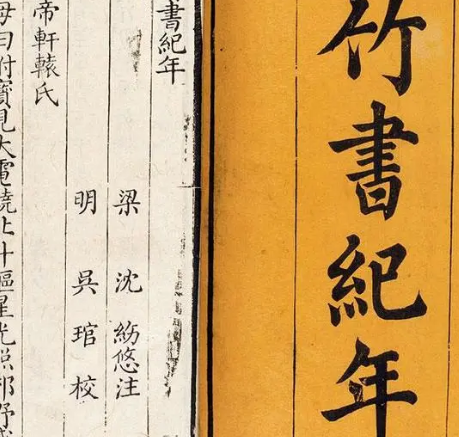 竹書紀年
書紀年
梁 沈 約悠注
明 吳 琯 校
帝軒轅氏
母曰附寶見大電繞北斗樞星光照郊野